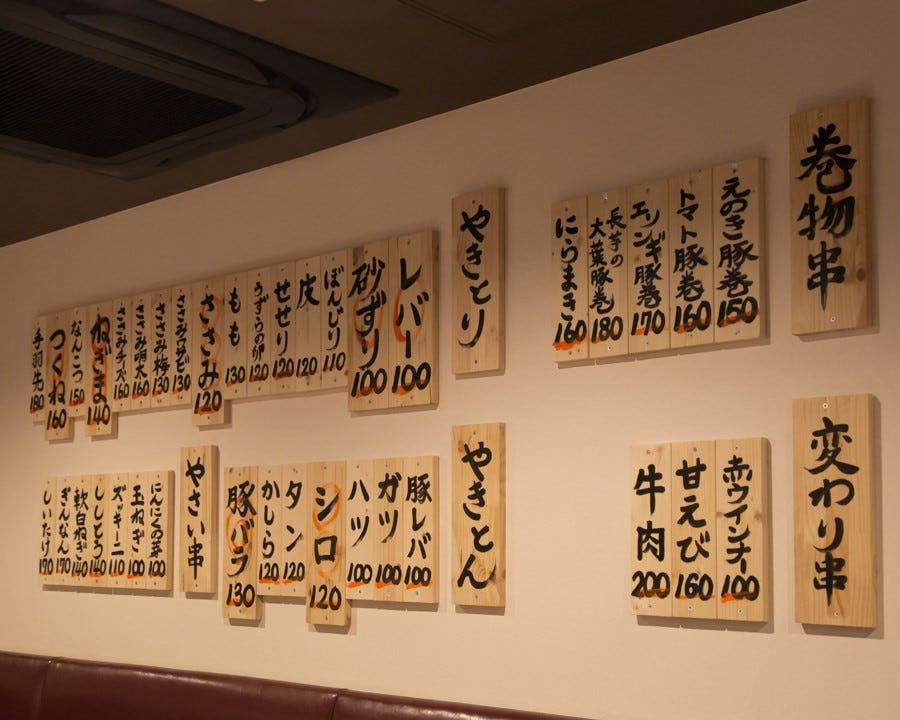 巻物串
えのき豚巻 150
トマト豚巻 160
エリンギ豚巻 170
長芋の大葉豚巻 180
にらまき 160
やきとり
レバー 100
砂ずり 100
ぼんじり 110
皮 120
せせり 120
うずらの卵 120
もも 130
ささみ 120
ささみワサビ 130
ささみ梅 130
ささみ明太 160
ささみチーズ 160
ねぎま 140
なんこつ 150
つくね 160
手羽先 180
変わり串
赤ウインナー 100
甘えび 160
牛肉 200
やきとん
豚レバ 100
ガツ 100
ハツ 100
シロ 120
タン 120
かしら 120
豚バラ 130
やさい串
にんにくの芽 100
玉ねぎ 100
ズッキーニ 110
ししとう 140
軟白ねぎ 140
ぎんなん 170
しいたけ 170